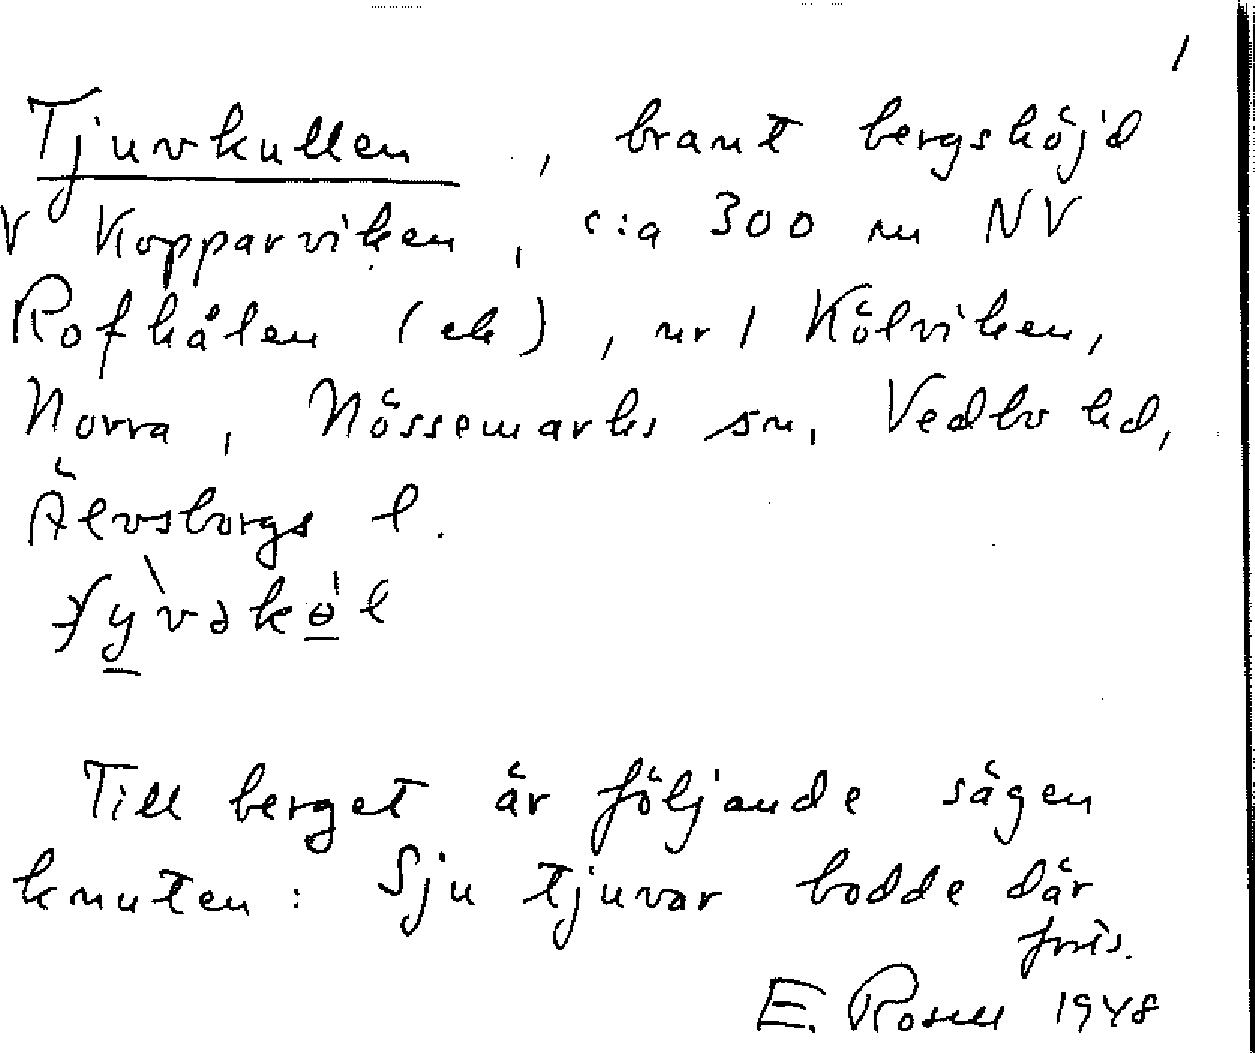 1
Tjuvkullen, brant bergshöjd
V Kopparviken, c:a 300 m NV
Rofkålen (ek), nr 1 Kölviken,
Norra, Nössemarks sn, Vedbo hd,
Älvsborgs l.
Till berget är följande sägen
knuten: Sju tjuvar bodde där
forts.
E. Rosell 1948